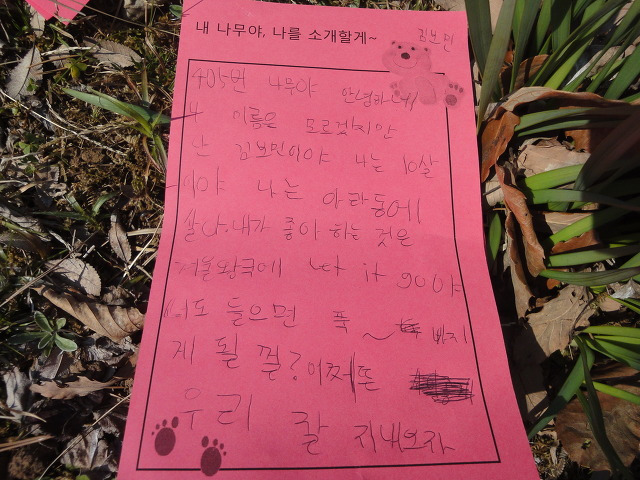 내 나무야, 나를 소개할게~
김보민
405번 나무야 안녕하니
네 이름은 모르겠지만
난 김보민이야 나는 10살
이야 나는 아라동에
살아. 내가 좋아 하는 것은
겨울왕국에 let it go야
너도 들으면 푹~ 빠지
게 될 껄? 어쩌뜬
우리 잘 지내보자